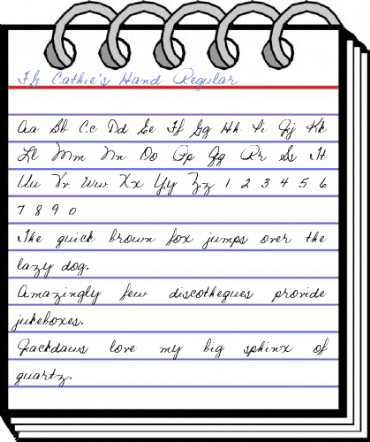 FG Cathie's Hand Regular
Aa Bb Cc Dd Ee Ff Gg Hh Ii Jj Kk
Ll Mm Nn Oo Pp Qq Rr Ss Tt
Uu Vv Ww Xx Yy Zz 1 2 3 4 5 6
7 8 9 0
The quick brown fox jumps over the
lazy dog.
Amazingly few discotheques provide
jukeboxes.
Jackdaws love my big sphinx of
quartz.